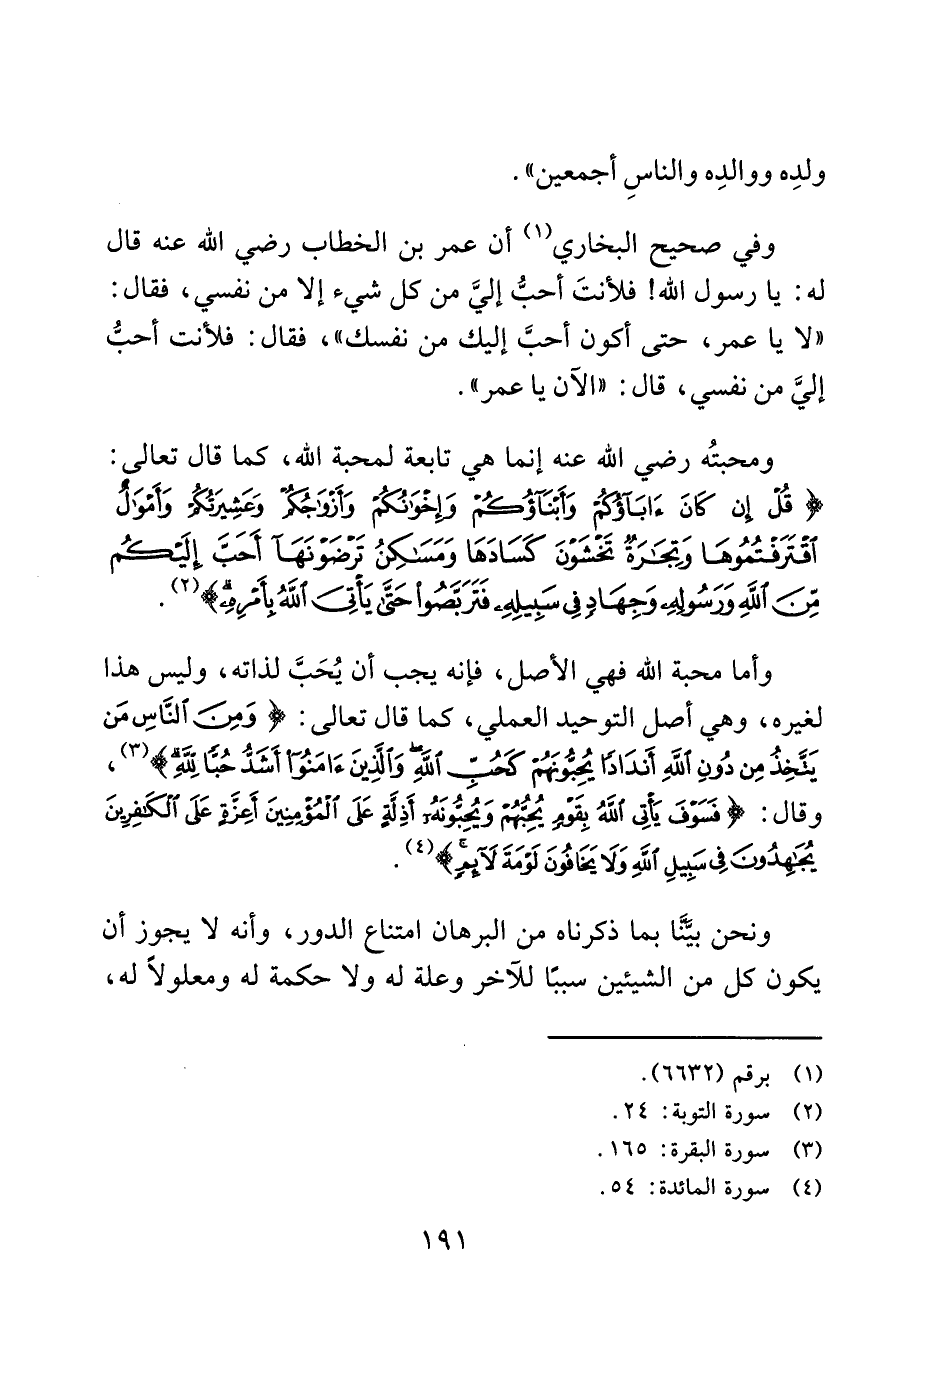 ولدِه ووالدِه والناسِ أجمعين» .
وفي صحيح البخاري(١) أن عمر بن الخطاب رضي الله عنه قال
له: يا رسول الله! فلأنتَ أحبُّ إليَّ من كل شيء إلا من نفسي، فقال:
«لا يا عمر، حتى أكون أحبَّ إليك من نفسك»، فقال: فلأنت أحبُّ
إليَّ من نفسي، قال: «الآن يا عمر».
ومحبتُه رضي الله عنه إنما هي تابعة لمحبة الله، كما قال تعالى:
﴿ قُلْ إِن كَانَ ءَابَآؤُكُمْ وَأَبْنَآؤُكُمْ وَإِخْوَٰنُكُمْ وَأَزْوَٰجُكُمْ وَعَشِيرَتُكُمْ وَأَمْوَٰلٌ
ٱقْتَرَفْتُمُوهَا وَتِجَٰرَةٌ تَخْشَوْنَ كَسَادَهَا وَمَسَٰكِنُ تَرْضَوْنَهَآ أَحَبَّ إِلَيْكُم
مِّنَ ٱللَّهِ وَرَسُولِهِۦ وَجِهَادٍ فِي سَبِيلِهِۦ فَتَرَبَّصُوا۟ حَتَّىٰ يَأْتِيَ ٱللَّهُ بِأَمْرِهِۦۗ﴾(٢) .
وأما محبة الله فهي الأصل، فإنه يجب أن يُحَبَّ لذاته، وليس هذا
لغيره، وهي أصل التوحيد العملي، كما قال تعالى: ﴿ وَمِنَ ٱلنَّاسِ مَن
يَتَّخِذُ مِن دُونِ ٱللَّهِ أَندَادًا يُحِبُّونَهُمْ كَحُبِّ ٱللَّهِۖ وَٱلَّذِينَ ءَامَنُوٓا۟ أَشَدُّ حُبًّا لِّلَّهِۗ﴾(٣)،
وقال: ﴿ فَسَوْفَ يَأْتِي ٱللَّهُ بِقَوْمٍ يُحِبُّهُمْ وَيُحِبُّونَهُۥٓ أَذِلَّةٍ عَلَى ٱلْمُؤْمِنِينَ أَعِزَّةٍ عَلَى ٱلْكَٰفِرِينَ
يُجَٰهِدُونَ فِي سَبِيلِ ٱللَّهِ وَلَا يَخَافُونَ لَوْمَةَ لَآئِمٍۚ﴾(٤) .
ونحن بيَّنَّا بما ذكرناه من البرهان امتناع الدور، وأنه لا يجوز أن
يكون كل من الشيئين سببًا للآخر وعلة له ولا حكمة له ومعلولاً له،
(١) برقم (٦٦٣٢).
(٢) سورة التوبة: ٢٤ .
(٣) سورة البقرة: ١٦٥ .
(٤) سورة المائدة: ٥٤ .
١٩١